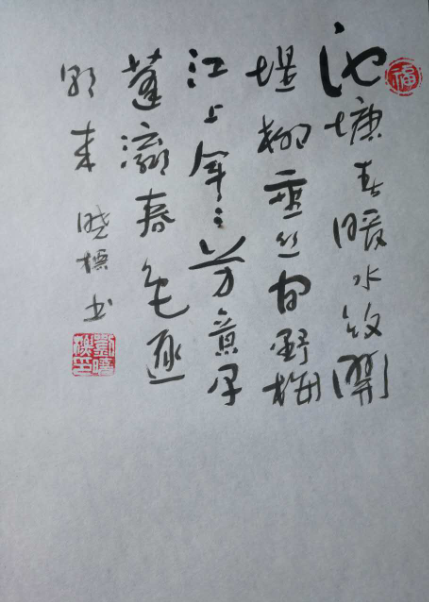 福
池塘春暖水纹開
堤柳垂丝间野梅
江上年々芳意早
蓬瀛春色逐
潮来 晓书